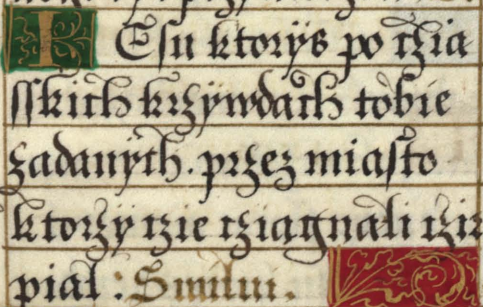 IEsu ktorÿs po czia
sskich krzÿwdach tobie
zadanÿch. przez miasto
ktorzÿ czie cziagnali czir
pial :